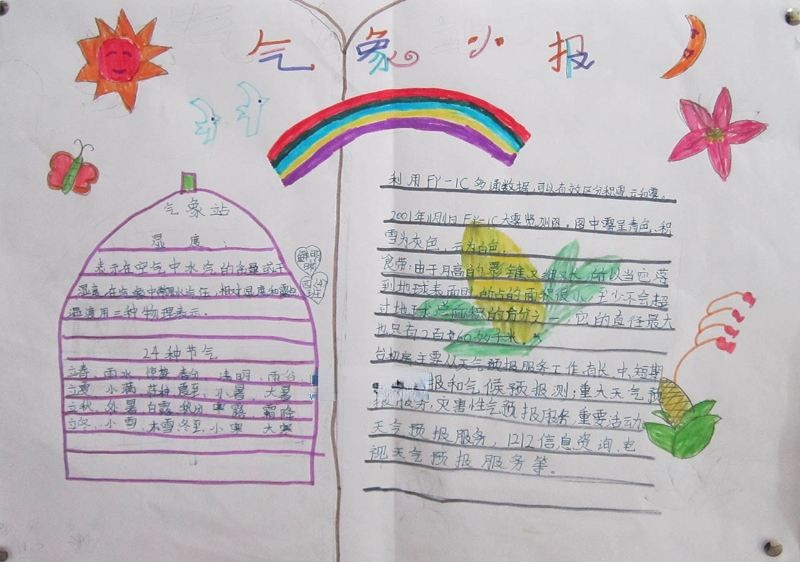 气象小报
气象站
湿度：
表示在空气中水汽的含量或干
湿度,在气象中物理
湿度用三种物理表示。
24种节气
立春,雨水 春分 清明,
立夏,小满 夏至,小暑,大暑
立秋,处暑 白露 秋分 寒露 霜降
立冬,小雪,大雪冬至,小寒 大寒
四(4)班
利用FY-1C 多通数据,可以有效区分积雪,云和雾。
2001年1月1日 FY-1C大雾监测图。图中雾呈青色,积
雪为灰色,云为白色。
食带:由于月亮的影锥又细又长,所以当它落
到地球表面时,所占的面积很小,至少不会超
过地球总面积的百分之一,它的直径最大
也只有2百60多千米。
主要从天气预报服务工作,有长、中、短期
报和气候预报测;重大天气预
报服务;灾害性气预报服务 重要活动
天气预报服务, 1212信息资询、电
视天气预报服务等。